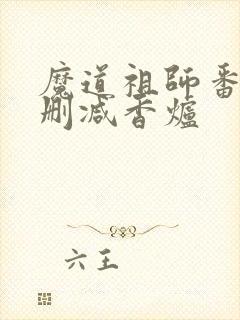 魔道祖師番
刪減香爐
六王